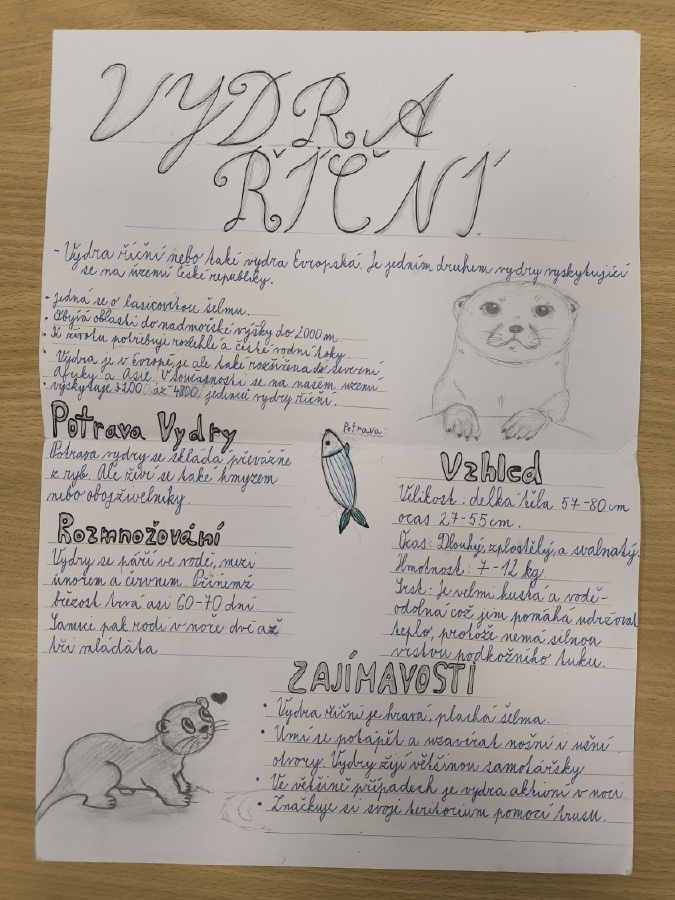 VYDRA
ŘÍČNÍ
- Vydra říční nebo také vydra Evropská. Je jedním druhem vydry vyskytující
se na území České republiky.
• jedná se o lasicovitou šelmu.
• Obývá oblasti do nadmořské výšky do 2000 m.
• K životu potřebuje rozlehlé a čisté vodní toky.
• Vydra je v Evropě, je ale také rozšířena do severní
Afriky a Asie. V současnosti se na našem území
• vyskytuje 3200 až 4800, jedinců vydry říční.
Potrava Vydry
Potrava vydry se skládá převážně
z ryb. Ale živí se také hmyzem
nebo obojživelníky.
Potrava:
Rozmnožování
Vydry se páří ve vodě, mezi
únorem a červnem. Přičemž
březost trvá asi 60-70 dní.
Samice pak rodí v noře dvě až
tři mláďata.
Vzhled
Velikost: delka těla 57-80cm
ocas 27-55cm.
Ocas: Dlouhý, zploštělý, a svalnatý.
Hmotnost: 7-12 kg
Srst: Je velmi hustá a vodě-
odolná což jim pomáhá udržovat
teplo, protože nemá silnou
vrstvu podkožního tuku.
ZAJÍMAVOSTI
• Vydra říční je hravá, plachá šelma.
• Umí se potápět a uzavírat nosní i ušní
otvory. Vydry žijí většinou samotářsky
• Ve většině případech je vydra aktivní v noci.
• Značkuje si svoje teritorium pomocí trusu.